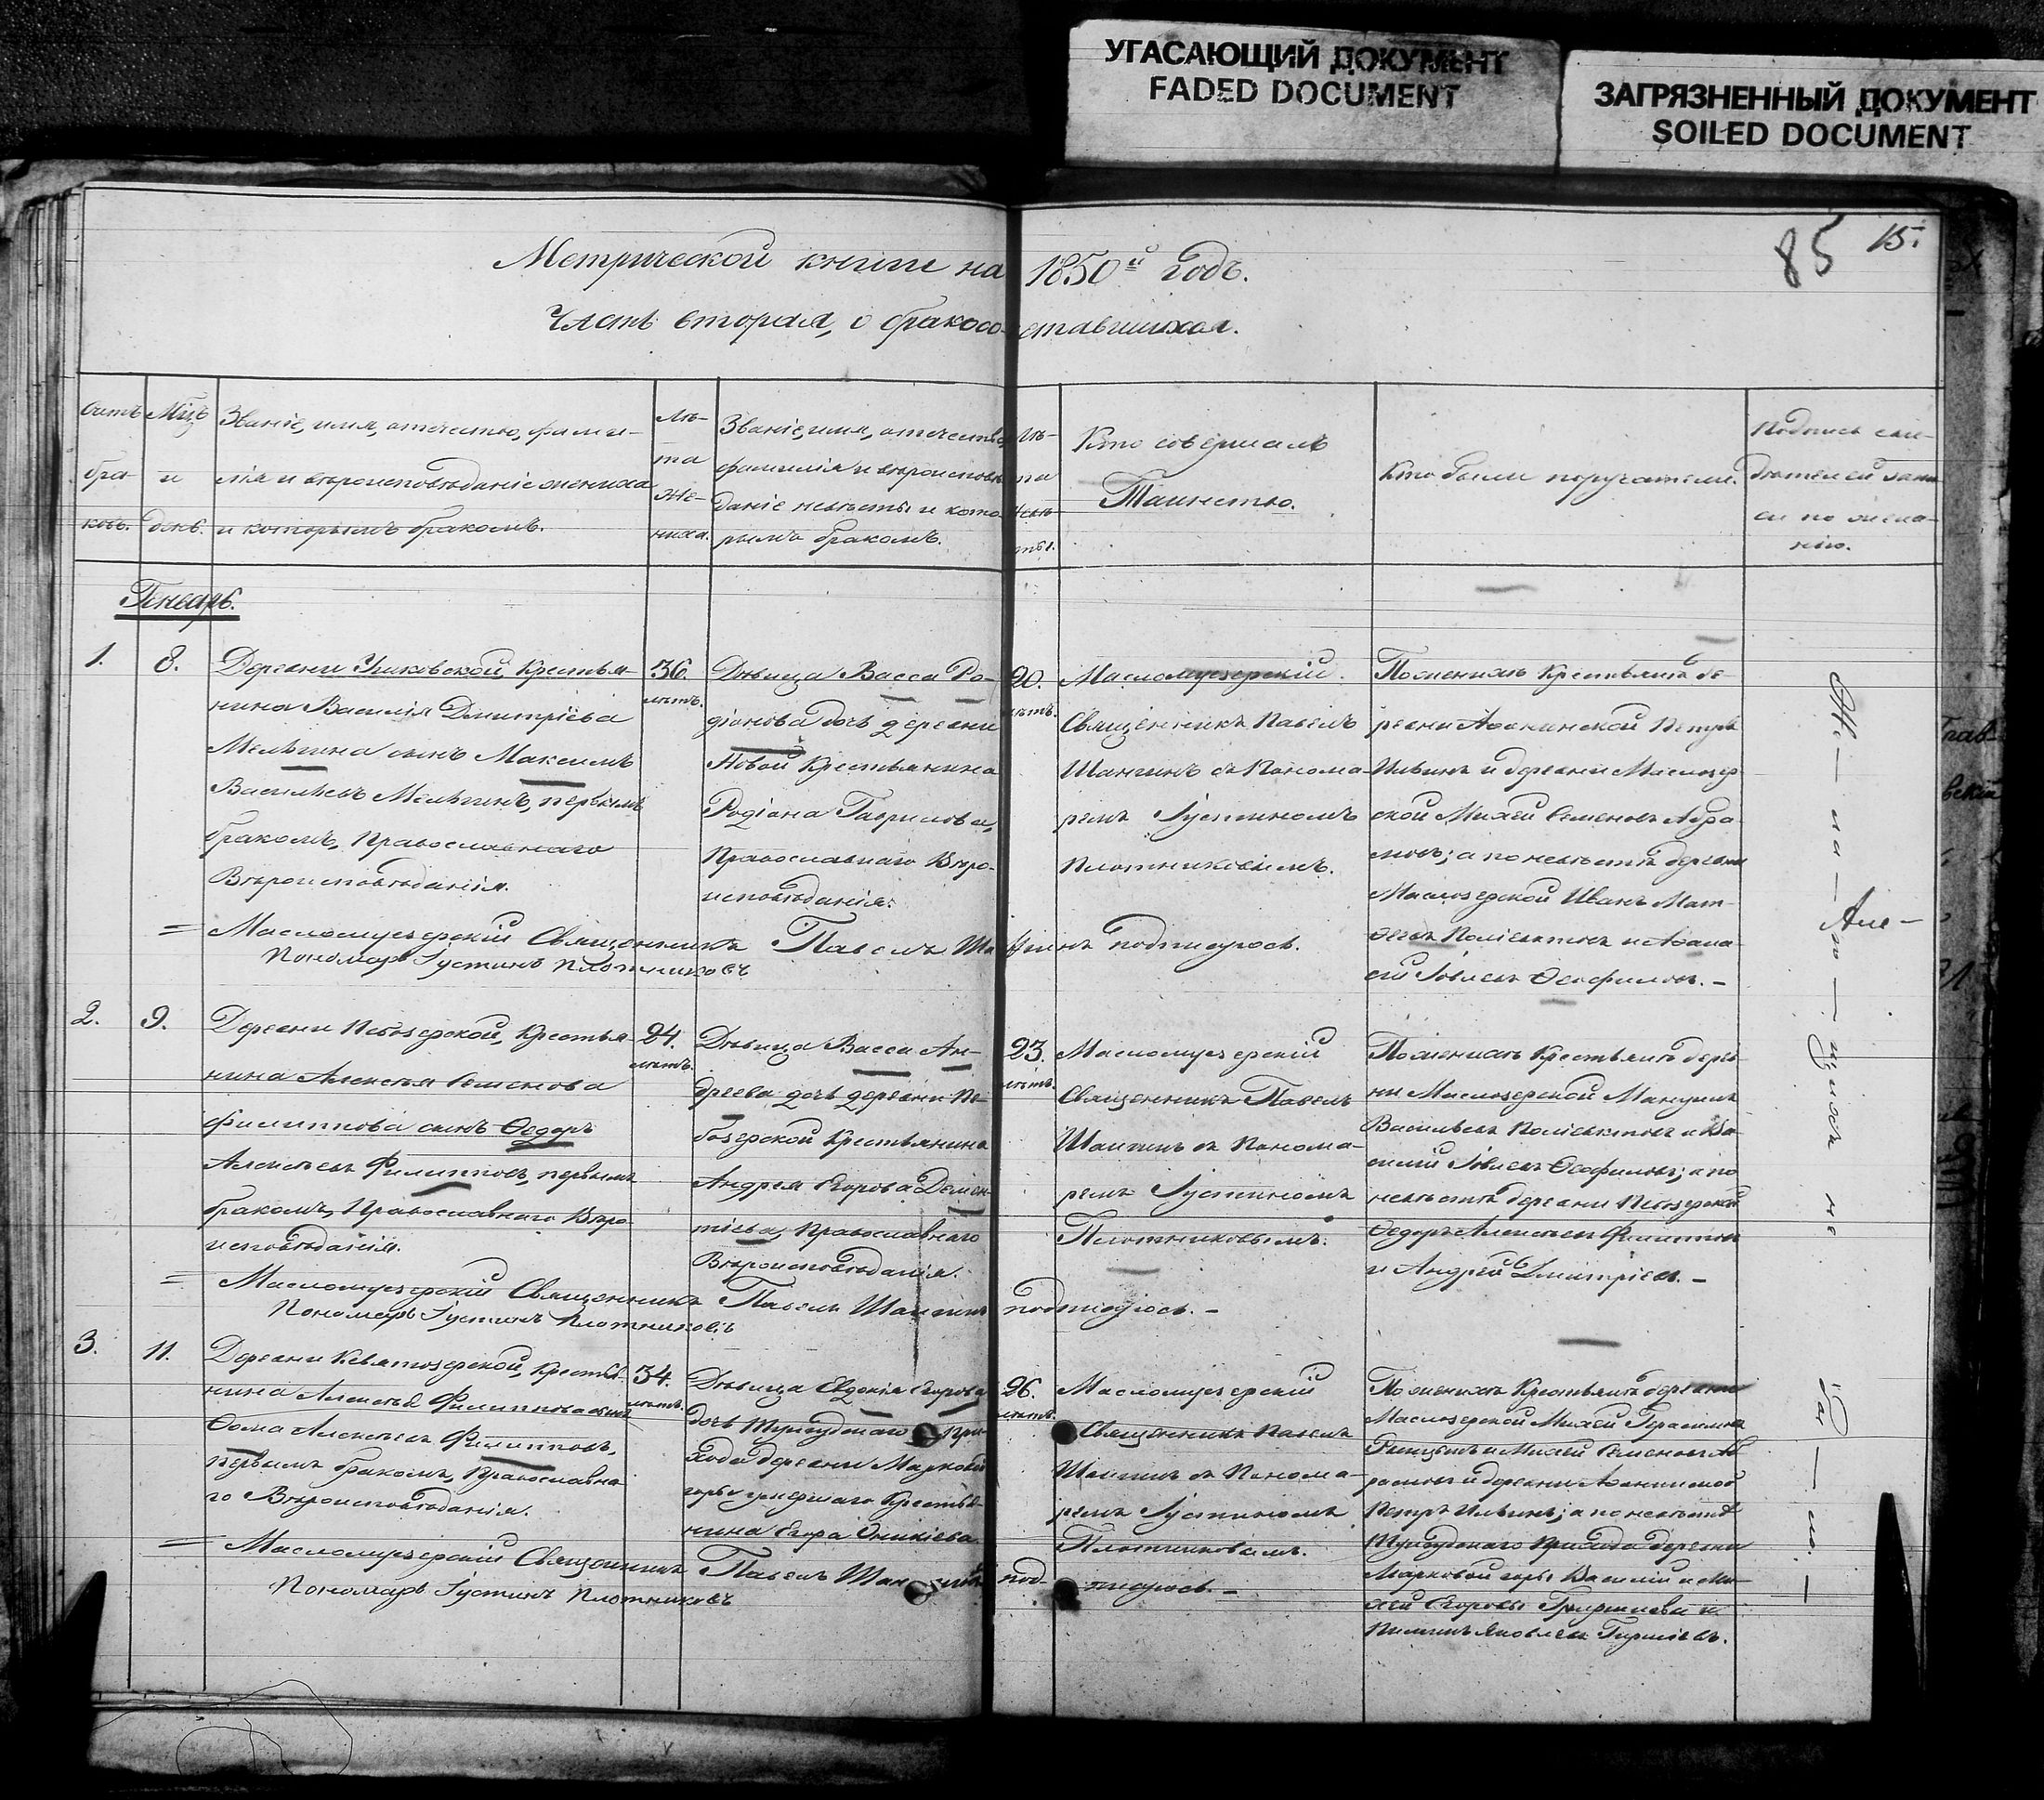 УГАСАЮЩИЙ ДОКУМЕНТ
FADED DOCUMENT
ЗАГРЯЗНЕННЫЙ ДОКУМЕНТ
SOILED DOCUMENT
85 15.
Метрической книги на 1850й годъ.
Часть вторая, о бракосочетавшихся.
Счетъ
бра-
ковъ.
Мѣцъ
и
день.
Званіе, имя, отчество, фами-
лія и вѣроисповѣданіе жениха
и которымъ бракомъ.
Лѣ-
та
же-
ниха.
Званіе, имя, отчество,
фамилія и вѣроисповѣ-
даніе невѣсты и кото-
рымъ бракомъ.
Лѣ-
та
невѣ-
сты.
Кто совершалъ
Таинство.
Кто были поручатели.
Подпись сви-
дѣтелей запи-
си по жела-
нію.
Генварь.
1.
8.
Деревни Крестья-
нина Василія Дмитріева
сынъ Максимъ
Васильевъ первымъ
бракомъ, Православнаго
Вѣроисповѣданія.
36.
лѣтъ.
Дѣвица Васса Ро-
діонова дочь деревни
Новой Крестьянина
Родіона Гаврилова,
Православнаго Вѣро-
исповѣданія.
20.
лѣтъ.
Масломузерскій
Священникъ Павелъ
Шангинъ съ Понома-
ремъ Іустиномъ
Плотниковымъ.
По женихѣ Крестьяне де-
ревни Петръ
Ильинъ и деревни Маслозер-
ской Михей Семеновъ Абра-
мовъ; а по невѣстѣ деревни
Маслозерской Иванъ Мат-
ѳеевъ и Аѳана-
сій Іовлевъ Ѳеофиловъ. -
= Масломузерскій Священникъ Павелъ Шангинъ подписуюсь.
Пономарь Іустинъ Плотниковъ
2.
9.
Деревни Пебозерской, Крестья-
нина Алексѣя Семенова
Филиппова сынъ Ѳедоръ
Алексѣевъ Филипповъ, первымъ
бракомъ, Православнаго Вѣро-
исповѣданія.
24.
лѣтъ.
Дѣвица Васса Ан-
дреева дочь деревни Пе-
бозерской Крестьянина
Андрея Егорова Демен-
тіева, Православнаго
Вѣроисповѣданія.
23.
лѣтъ.
Масломузерскій
Священникъ Павелъ
Шангинъ съ Понома-
ремъ Іустиномъ
Плотниковымъ.
По женихѣ Крестьяне дерев-
ни Маслозерской
Васильевъ и
Іовлевъ Ѳеофиловъ; а по
невѣстѣ деревни Пебозерской
Ѳедоръ Алексѣевъ Филипповъ
и Андрей Дмитріевъ. -
= Масломузерскій Священникъ Павелъ Шангинъ подписуюсь. -
Пономарь Іустинъ Плотниковъ
3.
11.
Деревни Кевятозерской, Крестья-
нина Алексѣя Филиппова сынъ
Ѳома Алексѣевъ Филипповъ,
первымъ бракомъ, Православна-
го Вѣроисповѣданія.
34.
лѣтъ.
Дѣвица Евдокія Егорова
дочь Тунгудскаго При-
хода деревни Марковой
горы умершаго Крестья-
нина Егора Оникіева
26.
лѣтъ.
Масломузерскій
Священникъ Павелъ
Шангинъ съ Понома-
ремъ Іустиномъ
Плотниковымъ.
По женихѣ Крестьяне деревни
Маслозерской Михей Герасимовъ
и Михей Семеновъ Аб-
рамовъ и деревни
Петръ Ильинъ; а по невѣстѣ
Тунгудскаго Прихода деревни
Марковой горы Василій и Ми-
хей Егоровы и
Яковлевъ
= Масломузерскій Священникъ Павелъ Шангинъ под- писуюсь. -
Пономарь Іустинъ Плотниковъ